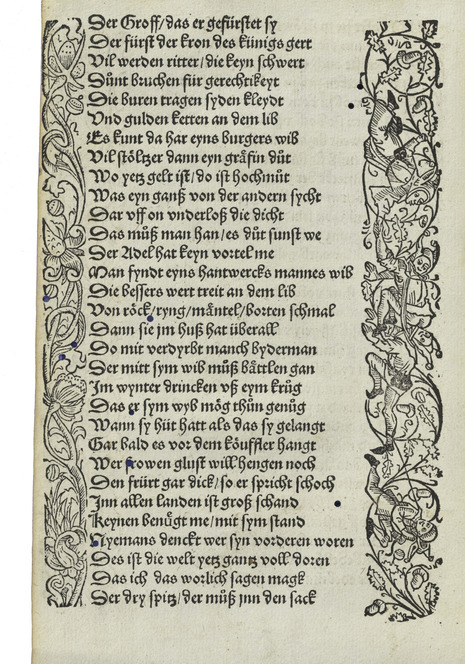 Der Groff/das er gefürstet sy
Der fürst der kron des künigs gert
Vil werden ritter/die keyn schwert
Důnt bruchen für gerechtikeyt
Die buren tragen syden kleydt
Vnd gulden ketten an dem lib
Es kunt da har eyns burgers wib
Vil stöltzer dann eyn gräfin důt
Wo yetz gelt ist/do ist hochmůt
Was eyn ganß von der andern sycht
Dar vff on vnderloß die dicht
Das můß man han/es důt sunst we
Der Adel hat keyn vortel me
Man fyndt eyns hantwercks mannes wib
Die bessers wert treit an dem lib
Von röck/ryng/mäntel/borten schmal
Dann sie jm huß hat überall
Do mit verdyrbt manch byderman
Der mitt sym wib můß bättlen gan
Jm wynter drincken vß eym krůg
Das er sym wyb mög thůn genůg
Wann sy hüt hatt als das sy gelangt
Gar bald es vor dem köuffler hangt
Wer frowen glust will hengen noch
Den frürt gar dick/so er spricht schoch
Jnn allen landen ist groß schand
Keynen benůgt me/mit sym stand
Nyemans denckt wer syn vorderen woren
Des ist die welt yetz gantz voll doren
Das ich das worlich sagen magk
Der dry spitz/der můß jnn den sack